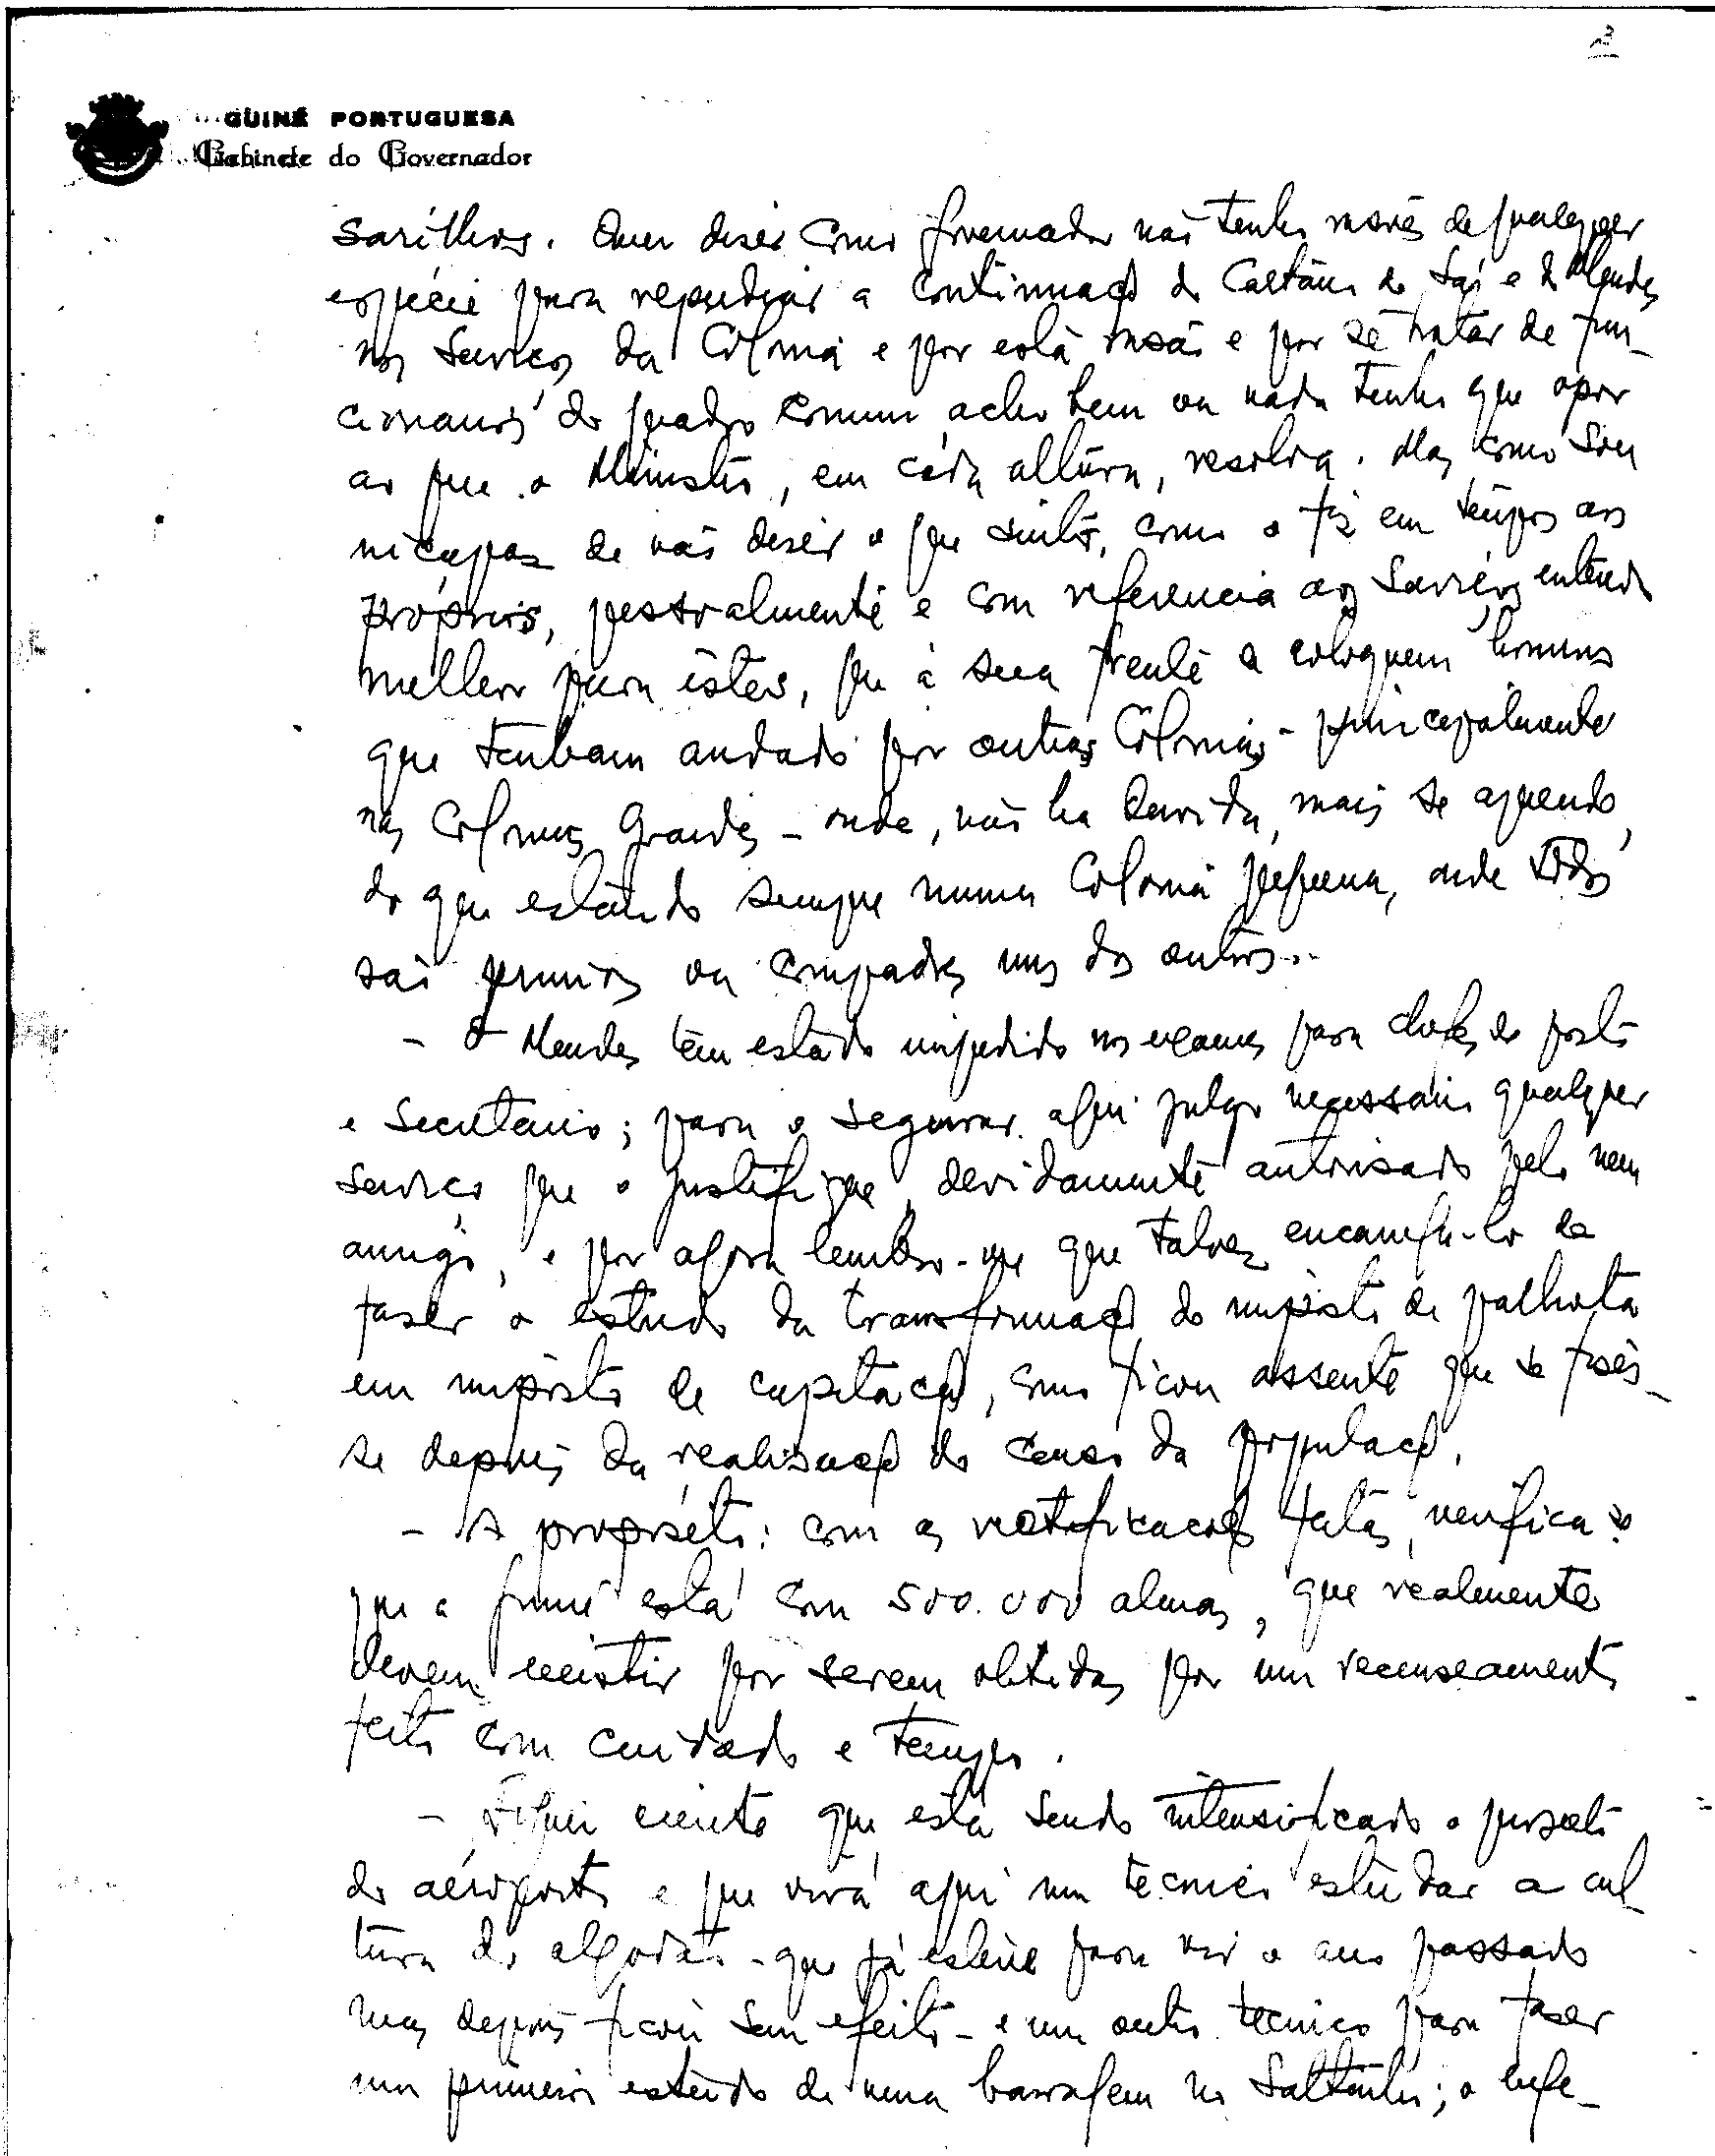 3
GUINÉ PORTUGUESA
Gabinete do Governador
sarilhos. Quer dizer como governador não tenho razões de qualquer
espécie para repudiar a continuação do Caetano de Sá e do Mendes
nos serviços da Colonia e por esta razão e por se tratar de fun-
cionarios do quadro comum acho bem ou nada tenho que opor
ao que o Ministro, em cada altura, resolva. Mas como sou
incapaz de não dizer o que sinto, como o fiz em tempos aos
próprios, pessoalmente e com referencia aos Serviços, entendo
melhor para êstes, que à sua frente se coloquem homens
que tenham andado por outras Colonias - principalmente
nas Colonias Grandes - onde, não ha duvida, mais se aprende,
do que estando sempre numa Colonia pequena, onde todos
são primos ou compadres uns dos outros..
- O Mendes tem estado impedido nos exames para chefes de posto
e Secretario; para o segurar aqui julgo necessario qualquer
serviço que o justifique, devidamente autorisado pelo meu
amigo, e por agora lembro-me que talvez encarregá-lo de
fazer o estudo da transformação do imposto de palhota
em imposto de capitação, como ficou assente que se fizes-
se depois da realisação do censo da população.
- A proposito: com as rectificações feitas, verifica-se
que a Guiné está com 500.000 almas, que realmente
devem existir por serem obtidas por um recenseamento
feito com cuidado e tempo.
- Fiquei ciente que está sendo intensificado o projecto
do aeroporto e que virá aqui um tecnico estudar a cul-
tura do algodão - que já esteve para vir o ano passado
mas depois ficou sem efeito - e um outro tecnico para fazer
um primeiro estudo de uma barragem no Saltinho; o enge-